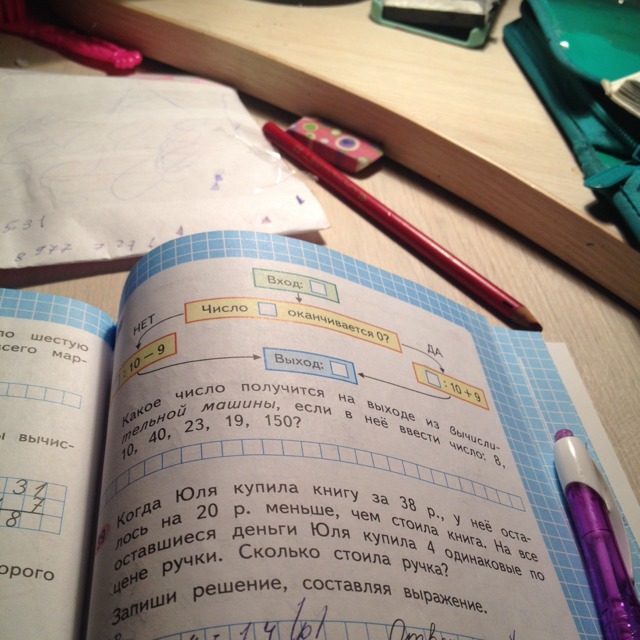 531
Вход:
Число оканчивается 0?
НЕТ
ДА
: 10 − 9
Выход:
: 10 + 9
Какое число получится на выходе из вычисли-
тельной машины, если в неё ввести число: 8,
10, 40, 23, 19, 150?
Когда Юля купила книгу за 38 р., у неё оста-
лось на 20 р. меньше, чем стоила книга. На все
оставшиеся деньги Юля купила 4 одинаковые по
цене ручки. Сколько стоила ручка?
Запиши решение, составляя выражение.
по шестую
всего мар-
ы вычис-
31
7
8
орого